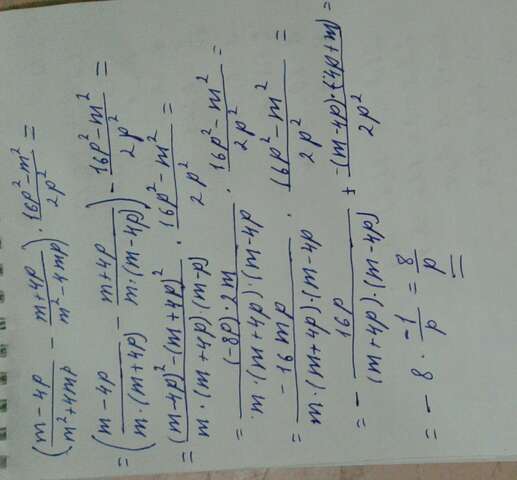 (m-4p/m²+4mp - m+4p/m²-4mp) · 16p²-m²/2p² =
= (m-4p/m·(m+4p) - m+4p/m·(m-4p)) · 16p²-m²/2p² =
= (m-4p)²-(m+4p)²/m·(m+4p)·(m-p) · 16p²-m²/2p² =
= (-8p)·2m/m·(m+4p)·(m-4p · 16p²-m²/2p² =
= -16mp/m·(m+4p)·(m-4p · 16p²-m²/2p² =
= - 16p/(m+4p)·(m-4p) + -(m-4p)·(4p+m)/2p² =
= - 8 · -1/p = 8/p